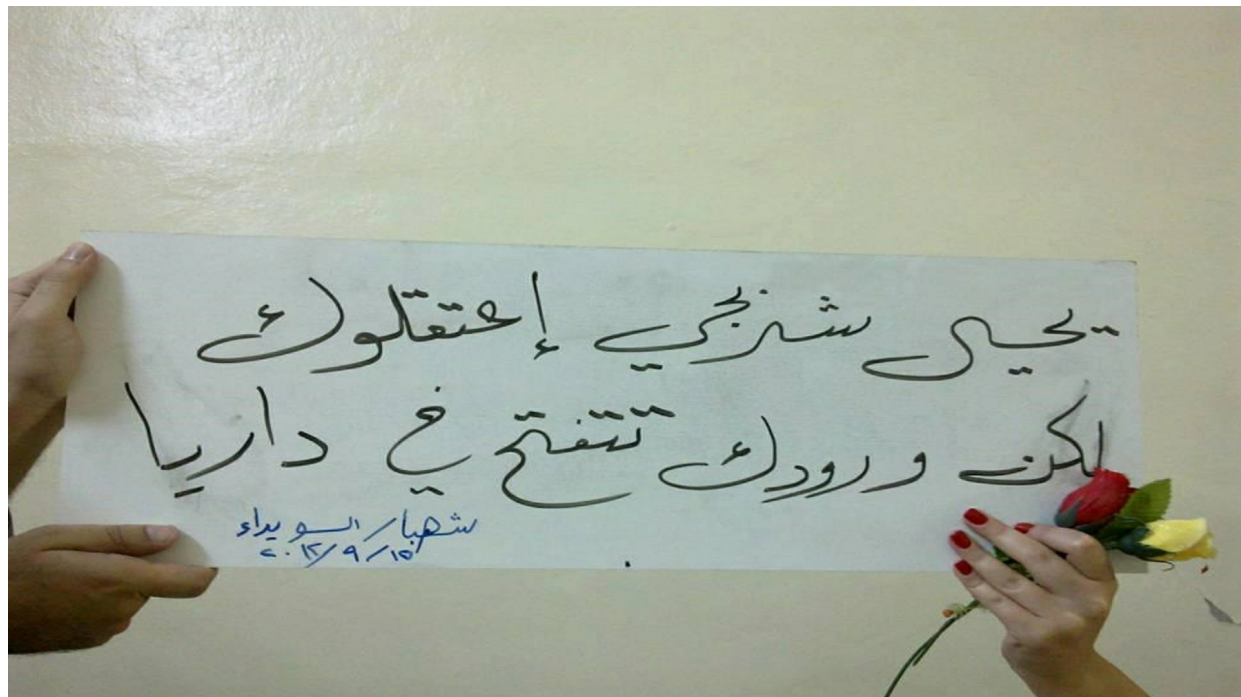 يحيى شربجي إعتقلوك
لكن ورودك تتفتح في داريا
شهبا/السويداء
٢٠١٢/٩/١٥